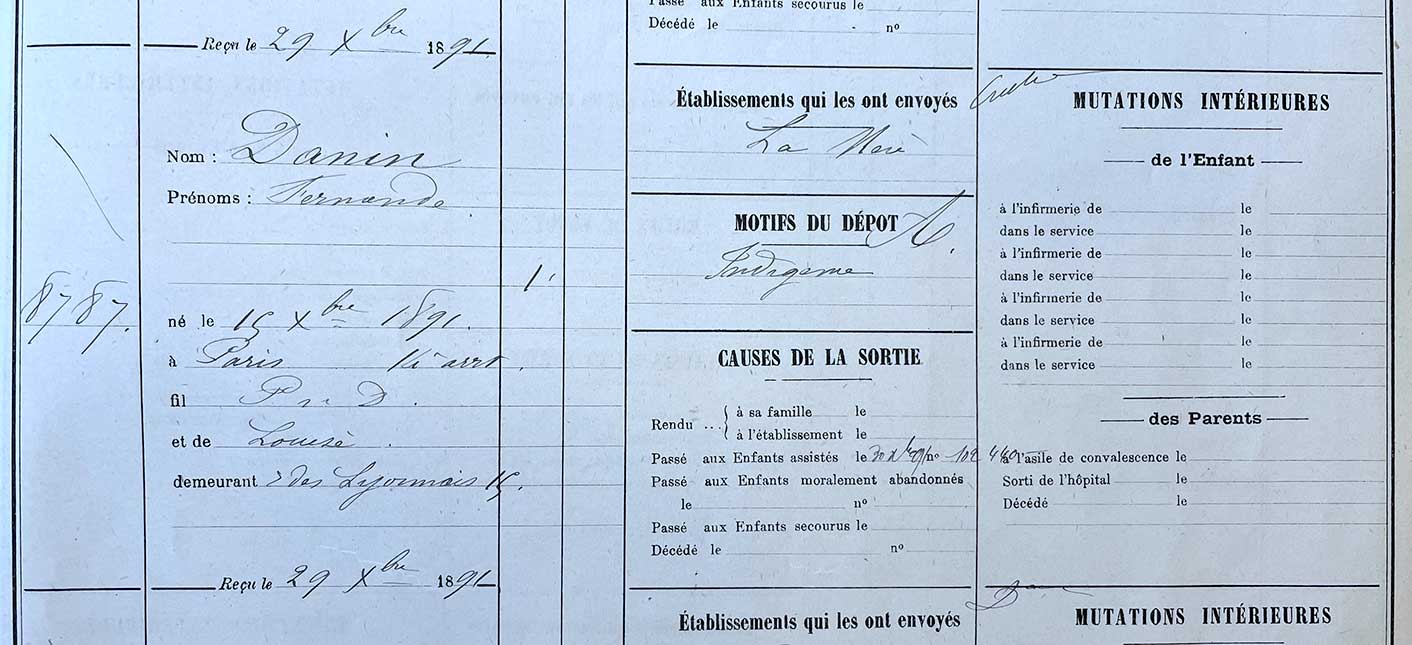 Reçu le 29 Xbre 1891
8787.
Nom : Danin
Prénoms : Fernande
1
né le 15 Xbre 1891.
à Paris arrt.
fil P n D.
et de Louise.
demeurant r des Lyonnais 15.
Reçu le 29 Xbre 1891
Passé aux Enfants secourus le
Décédé le nº
Établissements qui les ont envoyés
La Mère
MOTIFS DU DÉPOT A.
CAUSES DE LA SORTIE
Rendu ... à sa famille le
à l'établissement le
Passé aux Enfants assistés le 30 Xbre 91 nº 102
Passé aux Enfants moralement abandonnés
le nº
Passé aux Enfants secourus le
Décédé le nº
Établissements qui les ont envoyés
MUTATIONS INTÉRIEURES
de l'Enfant
à l'infirmerie de le
dans le service le
à l'infirmerie de le
dans le service le
à l'infirmerie de le
dans le service le
à l'infirmerie de le
dans le service le
des Parents
à l'asile de convalescence le
Sorti de l'hôpital le
Décédé le
MUTATIONS INTÉRIEURES